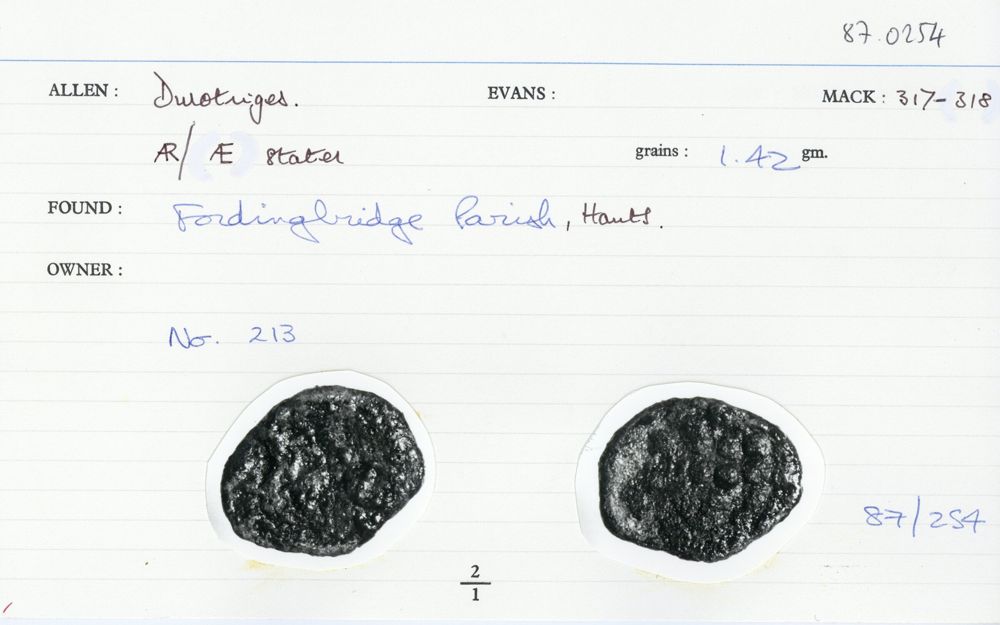 87.0254
ALLEN : Durotriges. EVANS : MACK : 317-318
ÆR/ Æ stater grains : 1.42 gm.
FOUND : Fordingbridge Parish, Hants.
OWNER :
No. 213
87/254
2
1